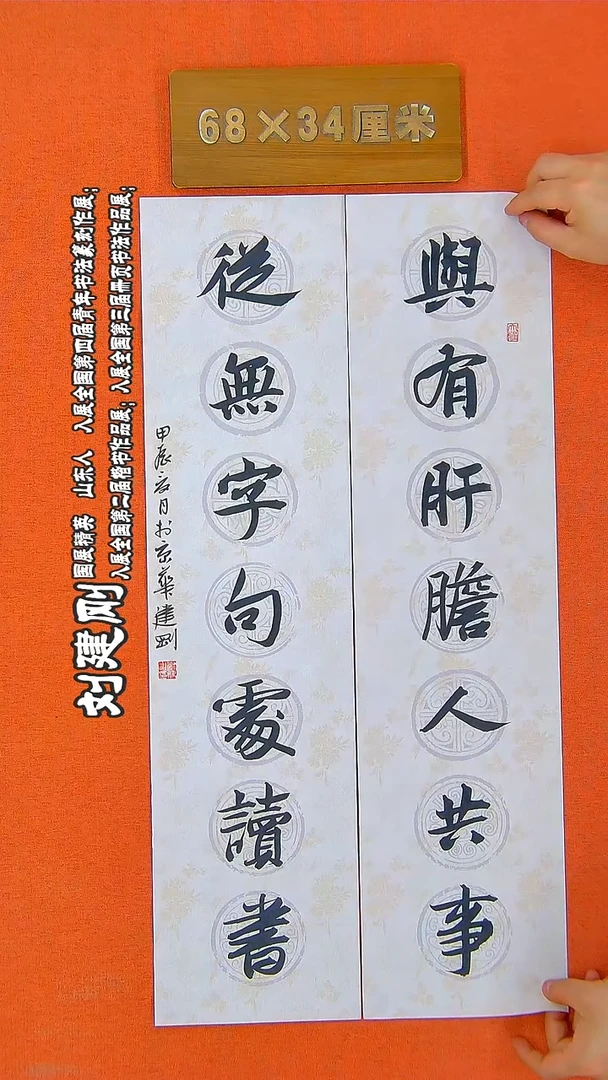 68×34厘米
與有肝膽人共事
從無字句處讀書
甲辰六月於京華建剛
刘建刚
国展精英 山东人 入展全国第四届青年书法篆刻作展;
入展全国第二届楷书作品展; 入展全国第三届册页书法作品展;